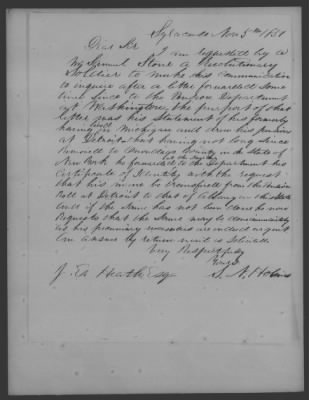 Syracuse Nov 5th 1850
Dear Sir
I am requested by a
Mr Samuel Stone a Revolutionary
Soldier to make his communication
to inquire after a letter forwarded some
time since to the Pension Department
at Washington, the purport of that
letter was his Statement of his formerly
having lived in Michigan and drew his pension
at Detroit but having not long since
removed to Onondaga County in the State of
New York he forwarded to the Department his
Certificate of Identity with the request
that his name be transferred from the Pension
Roll at Detroit to that of Albany in this State
and if the same has not been done he now
requests that the same may be done immediately
as his pecuniary are indeed urgent
An answer by return mail is solicited
Very Respectfully
Yours
J. Heath Esq